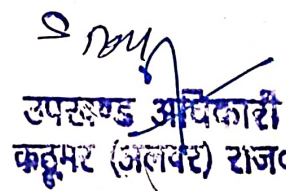 उपखण्ड अधिकारी
कठूमर (अलवर) राज०